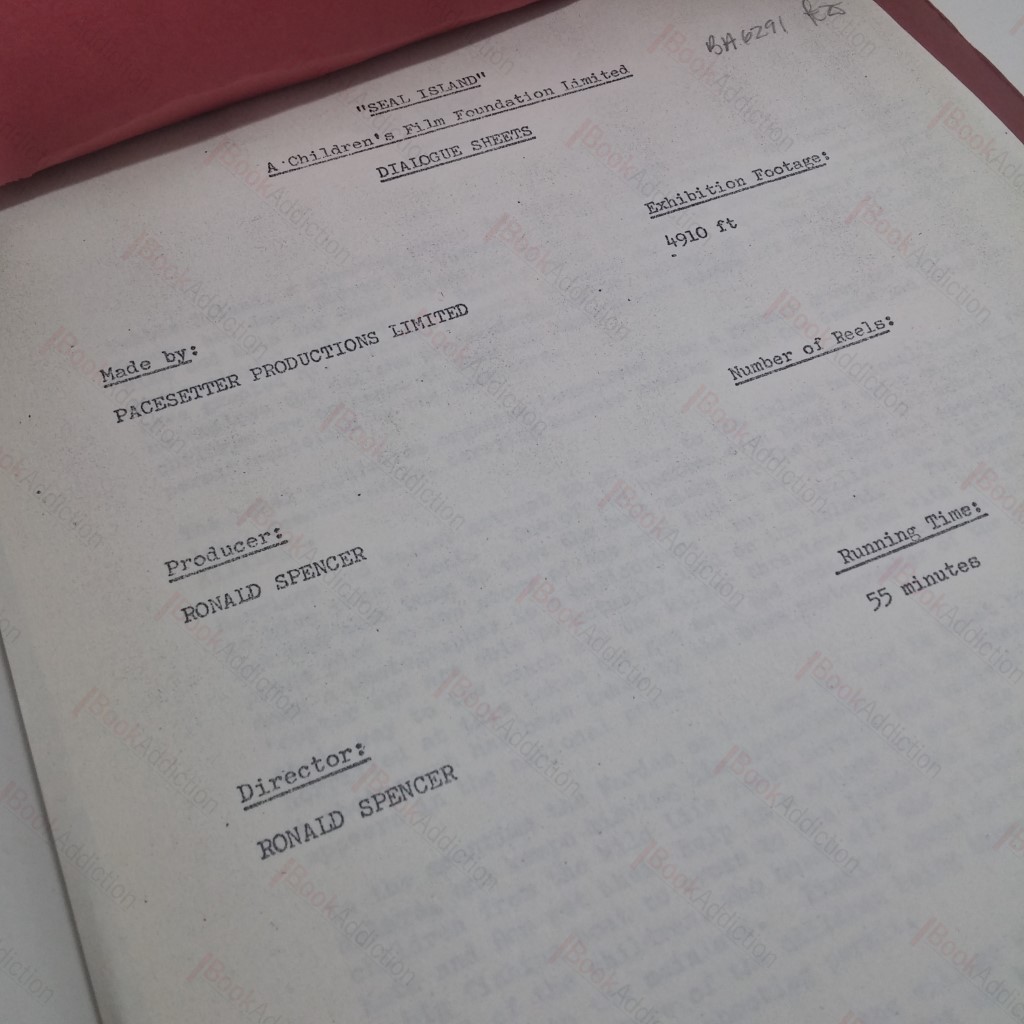 BA6291
"SEAL ISLAND"
A Children's Film Foundation Limited
DIALOGUE SHEETS
Exhibition Footage:
4910 ft
Made by:
PACESETTER PRODUCTIONS LIMITED
Number of Reels:
Producer:
RONALD SPENCER
Running Time:
55 minutes
Director:
RONALD SPENCER
BookAddiction